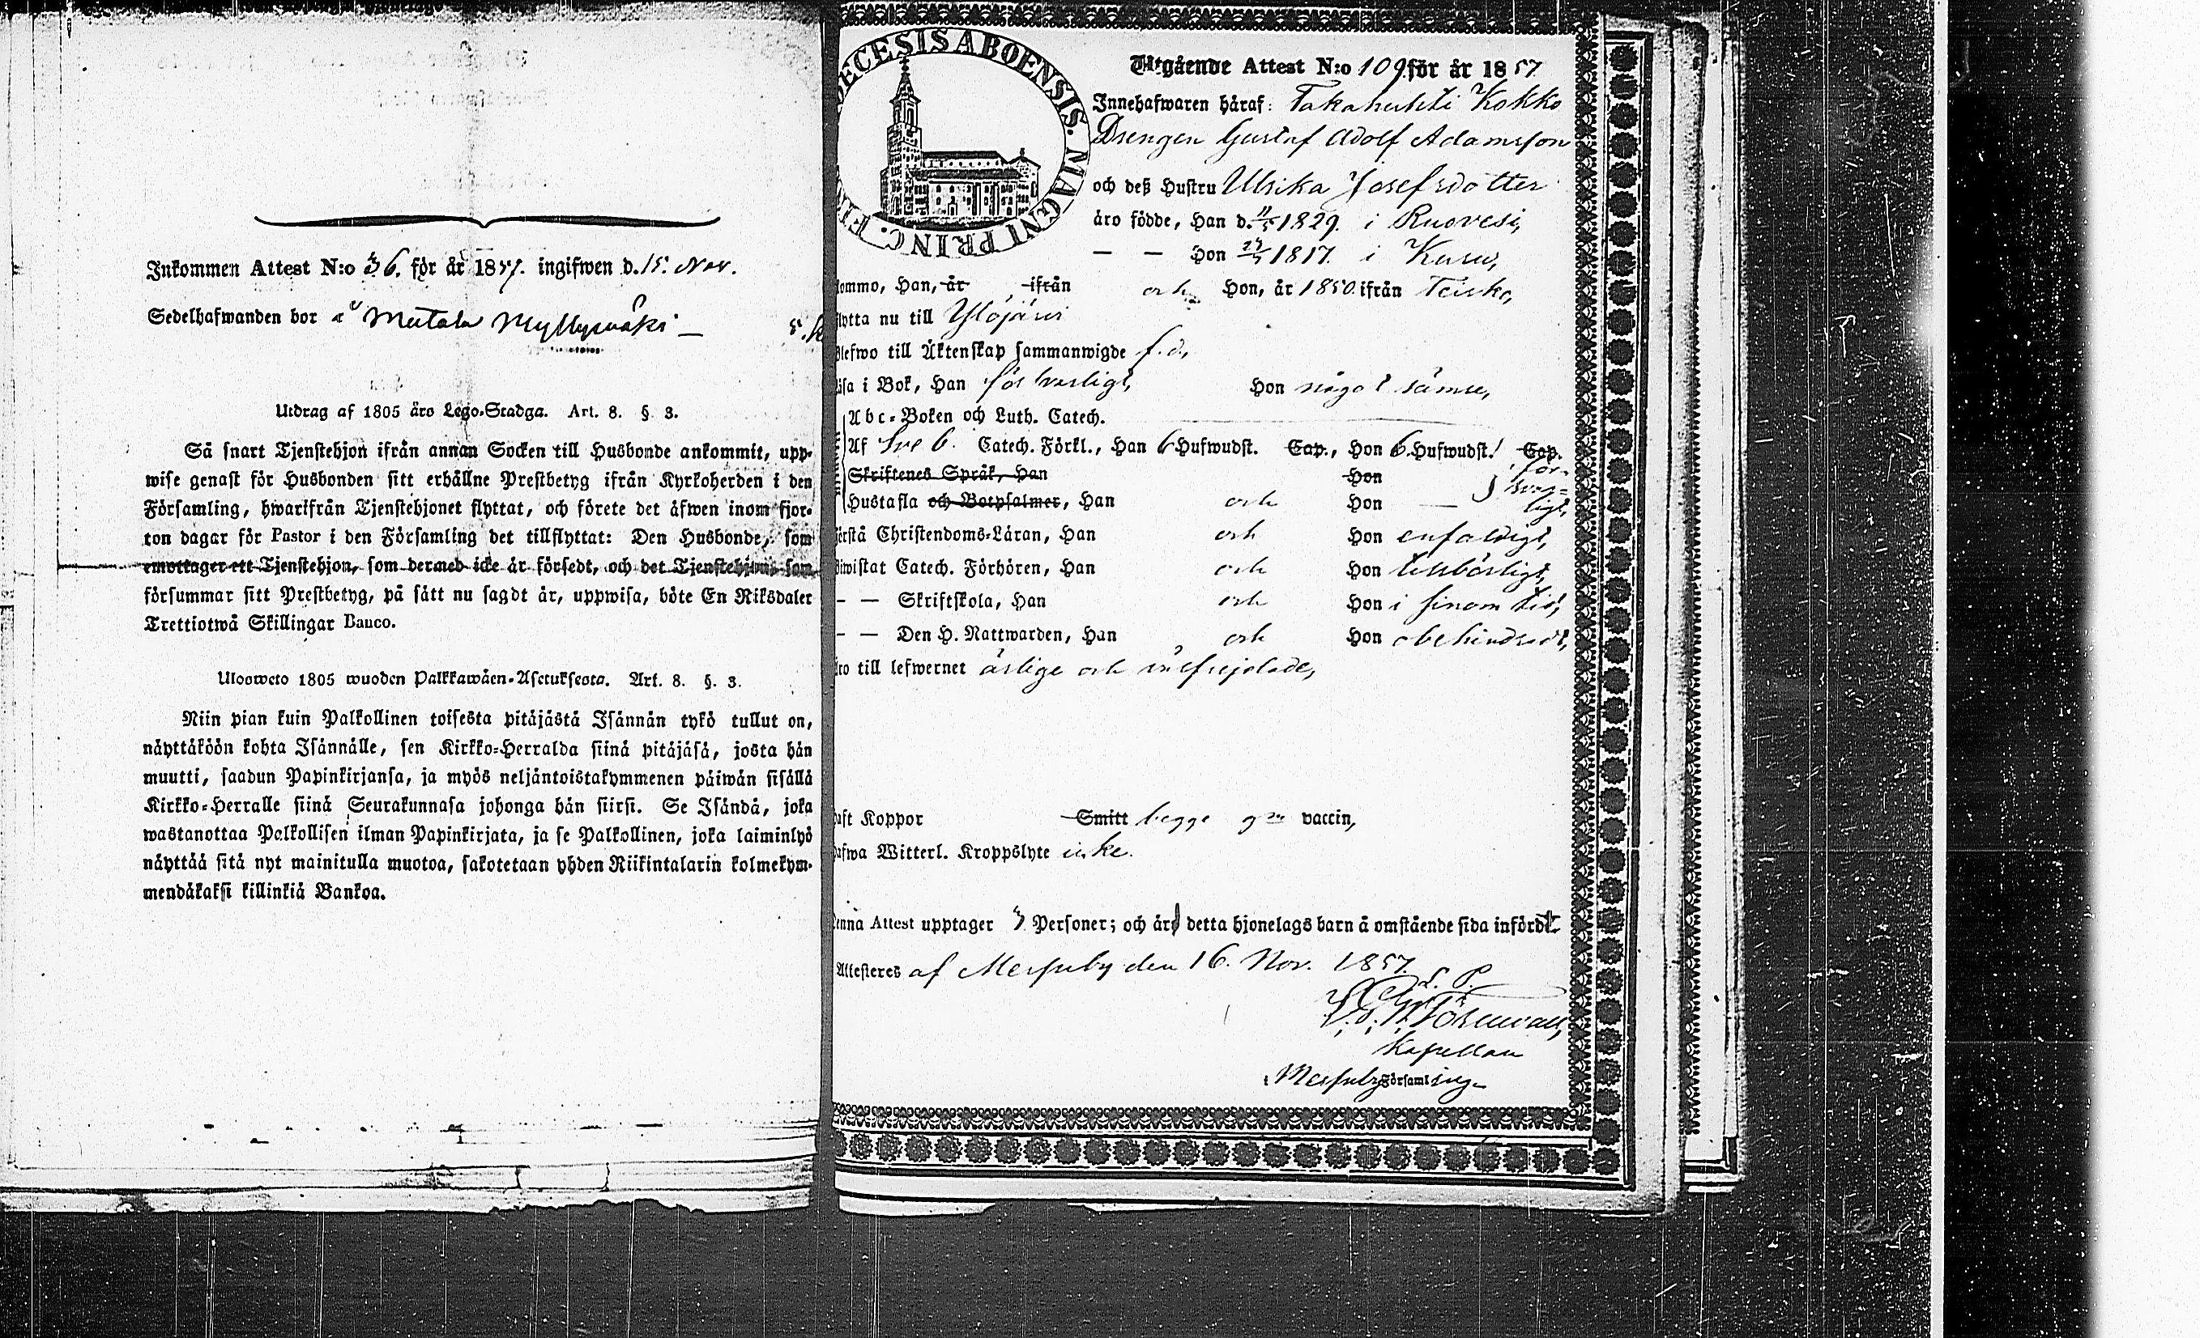 Inkommen Attest N:o 36. för år 1857. ingifwen d. 15. Nov.
Sedelhafwanden bor å Mutala Myllymäki
Utdrag af 1805 års Lego-Stadga. Art. 8. § 3.
Så snart Tjenstehjon ifrån annan Socken till Husbonde ankommit, upp-
wise genast för Husbonden sitt erhållne Prestbetyg ifrån Kyrkoherden i den
Församling, hwarifrån Tjenstehjonet flyttat, och förete det äfwen inom fjor-
ton dagar för Pastor i den Församling det tillflyttat: Den Husbonde, som
emottager ett Tjenstehjon, som dermed icke är försedt, och det Tjenstehjon, som
försummar sitt Prestbetyg, på sätt nu sagdt är, uppwisa, böte En Riksdaler
Trettiotwå Skillingar Banco.
Ulosweto 1805 wuoden Palkkawäen-Asetuksesta. Art. 8. §. 3.
Niin pian kuin Palkollinen toisesta pitäjästä Isännän tykö tullut on,
näyttäköön kohta Isännälle, sen Kirkko-Herralda siinä pitäjäsä, josta hän
muutti, saadun Papinkirjansa, ja myös neljäntoistakymmenen päiwän sisällä
Kirkko-Herralle siinä Seurakunnasa johonga hän siirsi. Se Isändä, joka
wastanottaa Palkollisen ilman Papinkirjata, ja se Palkollinen, joka laiminlyö
näyttää sitä nyt mainitulla muotoa, sakotetaan yhden Riikintalarin kolmekym-
mendäkaksi killinkiä Bankoa.
ECESIS ABOENSIS. MAGNI PRINC. FIN
Utgående Attest N:o 109 för år 1857
Innehafwaren häraf: Takahuhti Kokko
Drengen Gustaf Adolf Adamsson
och deß Hustru Ulrika Josefsdotter
äro födde, Han d. 11/5 1829. i Ruovesi,
— — Hon 1817. i Kuru,
ommo, Han, år ifrån och Hon, år 1850. ifrån Teisko,
lytta nu till Ylöjärvi
lefwo till Äktenskap sammanwigde f. å.,
äsa i Bok, Han försvarligt, Hon något sämre,
Abc-Boken och Luth. Catech.
Af Sve b. Catech. Förkl., Han 6 Hufwudst. Cap., Hon 6. Hufwudst. Cap.
Skriftenes Språk, Han Hon för-
svar-
Hustafla och Botpsalmer, Han och Hon — ligt,
örstå Christendoms-Läran, Han och Hon enfaldigt,
iwistat Catech. Förhören, Han och Hon tillbörligt,
— — Skriftskola, Han och Hon i sinom tid,
— — Den H. Nattwarden, Han och Hon obehindrade,
ro till lefwernet ärlige och oinfrejdade,
aft Koppor Smitt begge g:m vaccin,
afwa Witterl. Kroppslyte icke.
enna Attest upptager 3 Personer; och äro detta hjonelags barn å omstående sida infördt
Attesteres af Messuby den 16. Nov. 1857.
L. P.
Kapellan
i Messuby Församling